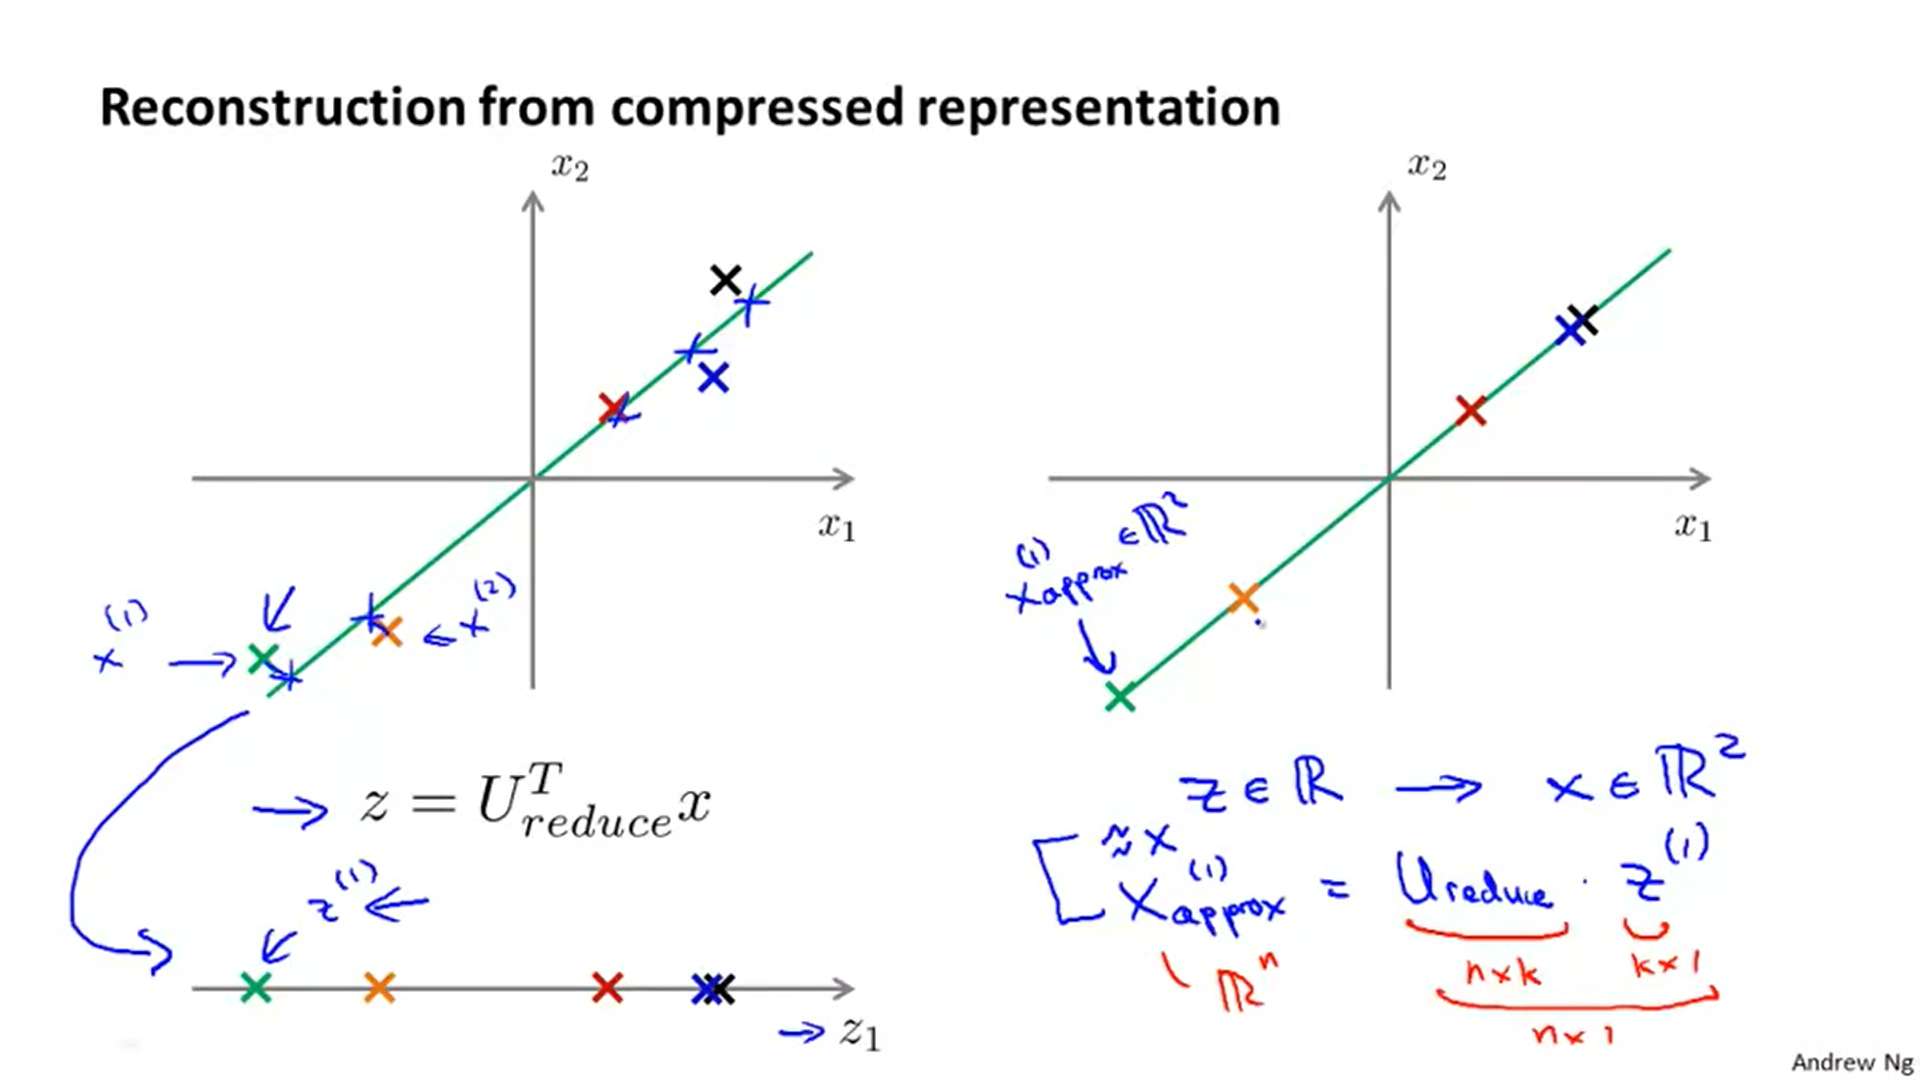 Reconstruction from compressed representation
x₂
x₁
x⁽¹⁾
x⁽²⁾
→ z = Uᵀ_reduce x
z⁽¹⁾
→ z₁
x₂
x₁
x⁽¹⁾_approx ∈ ℝ²
z ∈ ℝ → x ∈ ℝ²
≈ x
X⁽¹⁾_approx = U_reduce · z⁽¹⁾
ℝⁿ
n×k
k×1
n×1
Andrew Ng